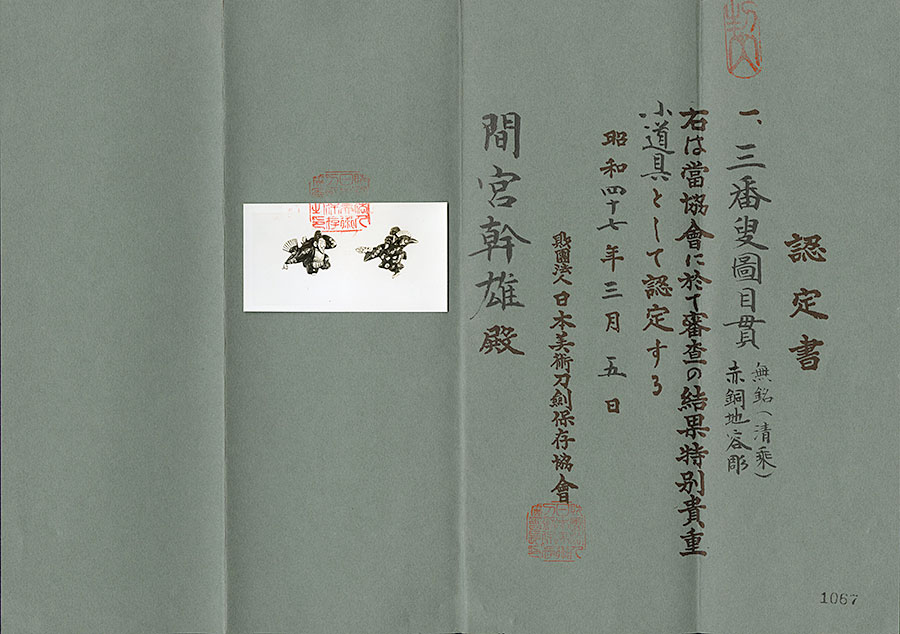 認定書
一、三番叟圖目貫
無銘(清乗)
赤銅地容彫
右は當協會に於て審査の結果特別貴重
小道具として認定する
昭和四十七年三月五日
財團法人日本美術刀劍保存協會
間宮幹雄殿
1067